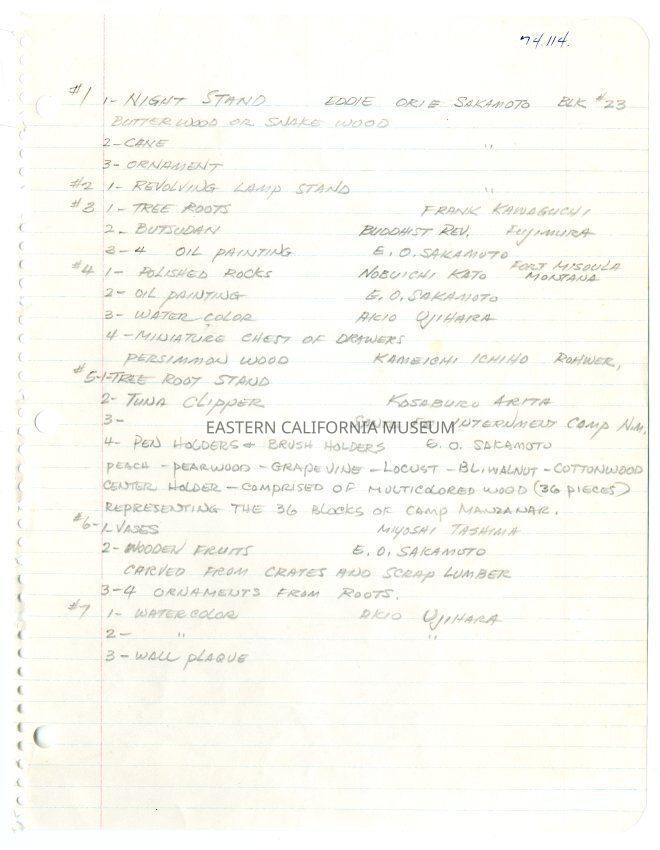 74.114.
#1 1- NIGHT STAND EDDIE ORIE SAKAMOTO BLK #23
BUTTERWOOD OR SNAKE WOOD
2- CANE "
3- ORNAMENT
#2 1- REVOLVING LAMP STAND "
#3 1- TREE ROOTS FRANK KAWAGUCHI
2- BUTSUDAN BUDDHIST REV. FUJIMURA
3-4 OIL PAINTING E.O. SAKAMOTO
#4 1- POLISHED ROCKS NOBUICHI KATO FORT MISOULA MONTANA
2- OIL PAINTING E.O. SAKAMOTO
3- WATER COLOR AKIO UJIHARA
4- MINIATURE CHEST OF DRAWERS
PERSIMMON WOOD KAMEICHI ICHIHO ROHWER,
#5-1-TREE ROOT STAND
2- TUNA CLIPPER KOSABURO ARITA
3- INTERNMENT CAMP N.M.
EASTERN CALIFORNIA MUSEUM
4- PEN HOLDERS + BRUSH HOLDERS E.O. SAKAMOTO
PEACH - PEARWOOD - GRAPEVINE - LOCUST - BLIWALNUT - COTTONWOOD
CENTER HOLDER - COMPRISED OF MULTICOLORED WOOD (36 PIECES)
REPRESENTING THE 36 BLOCKS OF CAMP MANZANAR.
#6-1-VASES MIYOSHI TASHIMA
2- WOODEN FRUITS E.O. SAKAMOTO
CARVED FROM CRATES AND SCRAP LUMBER
3-4 ORNAMENTS FROM ROOTS.
#7 1- WATERCOLOR AKIO UJIHARA
2- " "
3- WALL PLAQUE